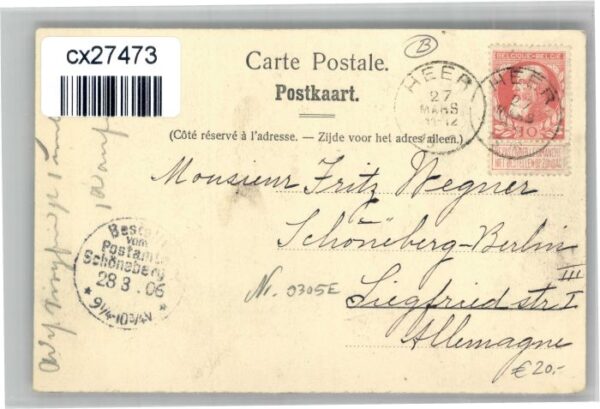 cx27473
Carte Postale.
Postkaart.
(Côté réservé à l'adresse. — Zijde voor het adres alleen.)
B
HEER
27
MARS
11-12
HEER
BELGIQUE·BELGIË
10
Monsieur Fritz Wegner
Schöneberg-Berlin
III
Siegfriedstr. I
Allemagne
Nr. 0305E
€20.-
Bestellt
vom
Postamte
Schöneberg
28 3. 06
9¼-10¾V